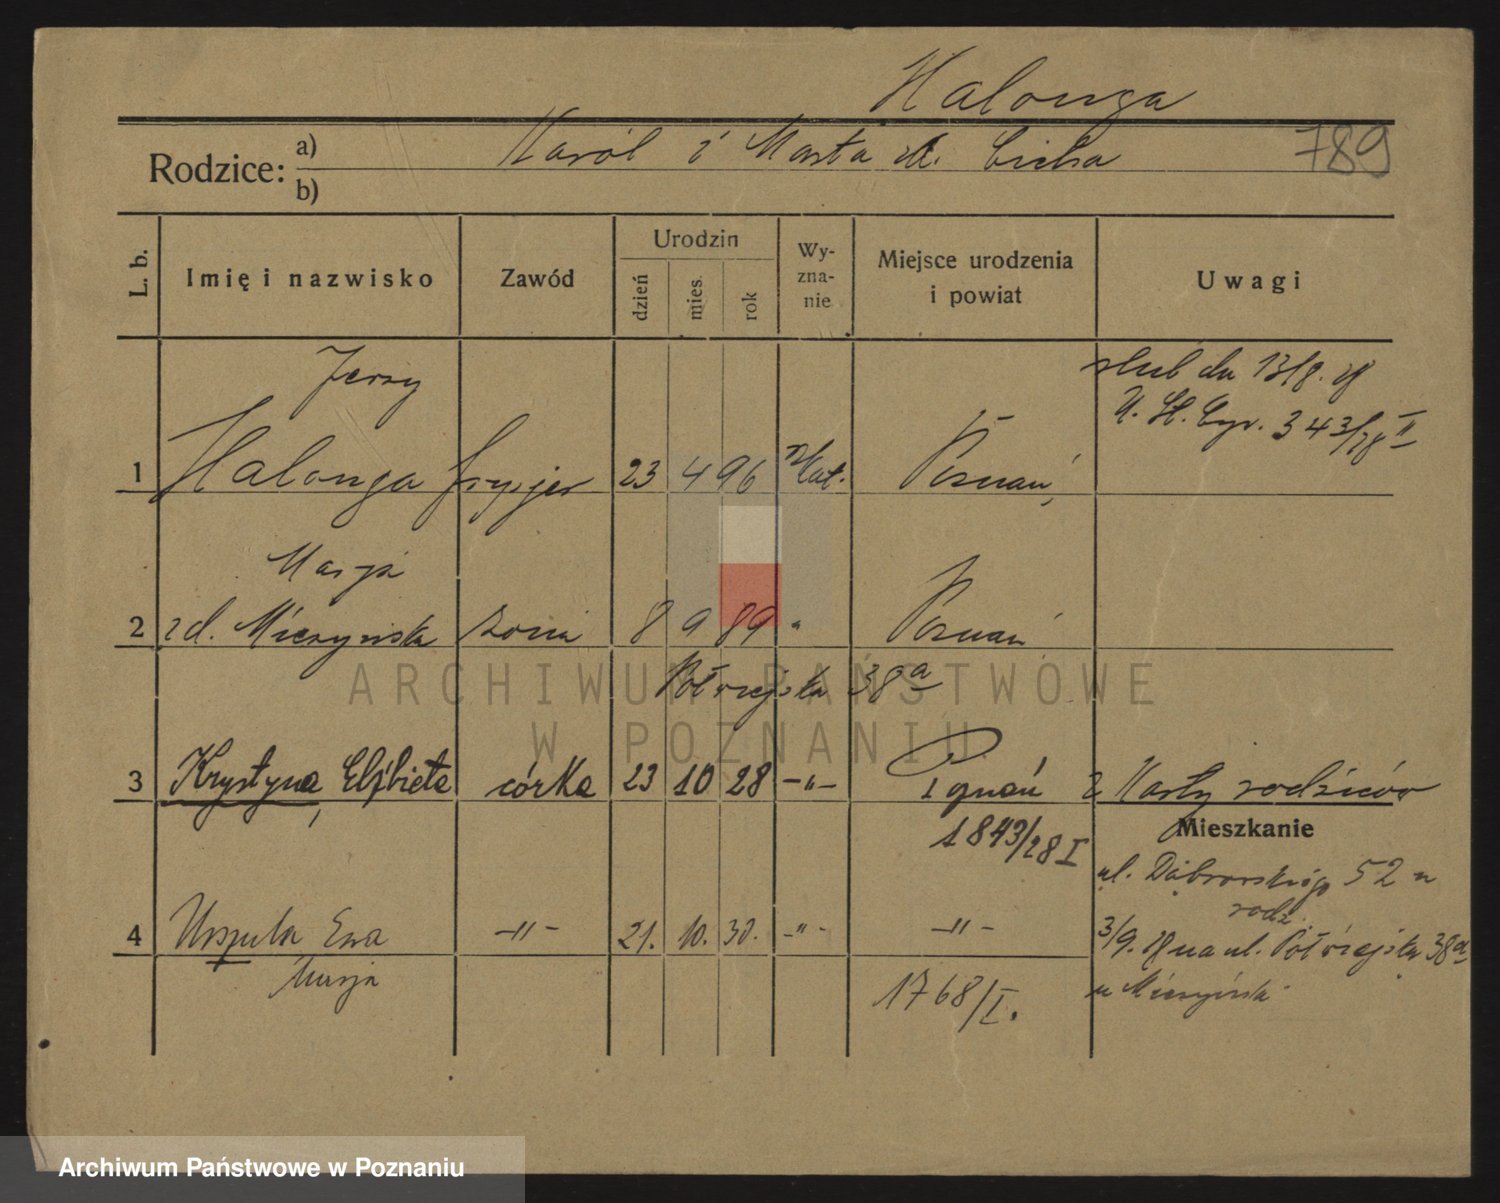 Halonga
789
Rodzice: a) Karól i Marta z d. Cicha
b)
L. b. Imię i nazwisko Zawód Urodzin dzień mies. rok Wy-zna-nie Miejsce urodzenia i powiat Uwagi
Jerzy ślub dn 13/8. 28
U. St. Cyw. 343/28 II
1 Halonga fryzjer 23 4 96 kat. Poznań,
Marja
2 z d. Mieszyńska żona 8 9 89 " Poznań
Półwiejska 38a
3 Krystyna, Elżbieta córka 23 10 28 -"- Poznań z Karty rodziców
1843/28 I Mieszkanie
ul. Dąbrowskiego 52 u
rodz.
4 Urszula Ewa -"- 21. 10. 30. -"- -"- 3/9. 28 na ul. Półwiejska 38a
Marja 1768/I. u Mieszyńska
ARCHIWUM PAŃSTWOWE
W POZNANIU
Archiwum Państwowe w Poznaniu